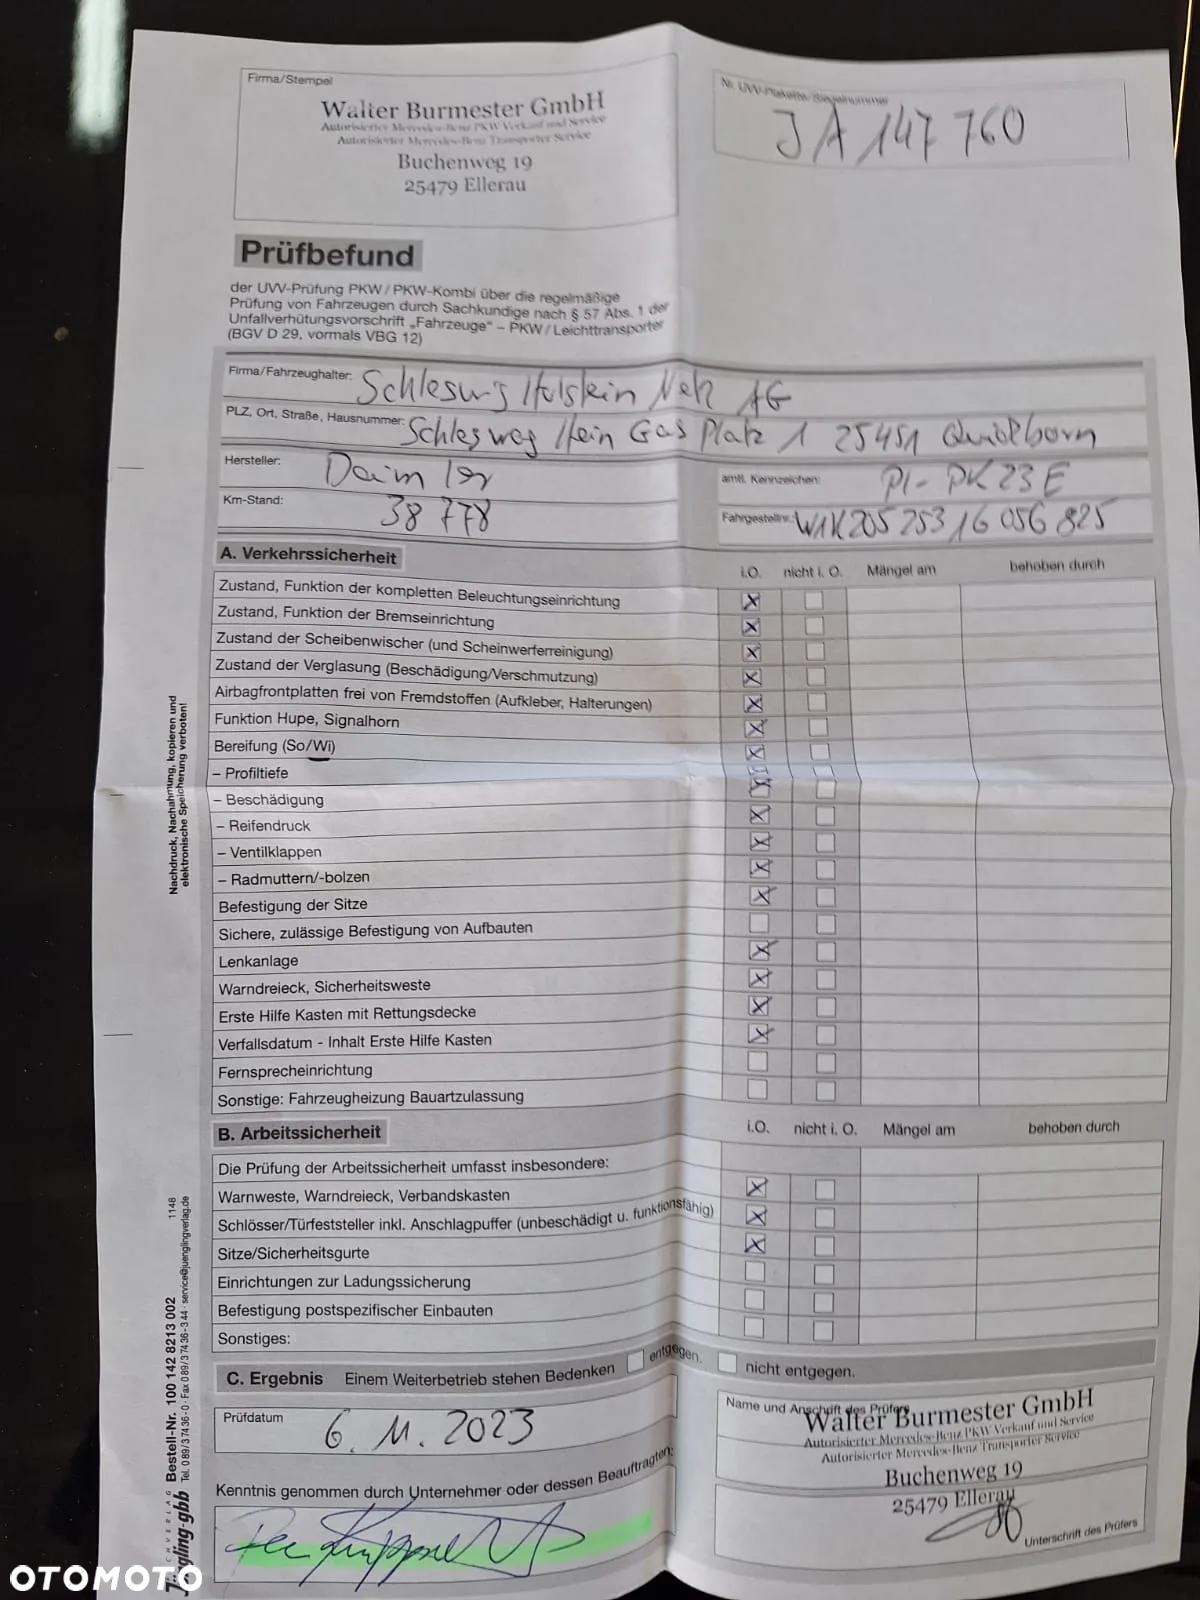 Firma/Stempel
Walter Burmester GmbH
Autorisierter Mercedes-Benz PKW Verkauf und Service
Autorisierter Mercedes-Benz Transporter Service
Buchenweg 19
25479 Ellerau
Nr. UVV-Plakette/Siegelnummer
JA 147 760
Prüfbefund
der UVV-Prüfung PKW / PKW-Kombi über die regelmäßige
Prüfung von Fahrzeugen durch Sachkundige nach § 57 Abs. 1 der
Unfallverhütungsvorschrift „Fahrzeuge“ – PKW / Leichttransporter
(BGV D 29, vormals VBG 12)
Firma/Fahrzeughalter: Schleswig Holstein Netz AG
PLZ, Ort, Straße, Hausnummer: Schlesweg Hein Gas Platz 1 25451 Quickborn
Hersteller: Daimler
amtl. Kennzeichen: PI - PK 23 E
Km-Stand: 38 778
Fahrgestellnr.: W1K205 253 16 056 825
A. Verkehrssicherheit
i.O. nicht i. O. Mängel am behoben durch
Zustand, Funktion der kompletten Beleuchtungseinrichtung
Zustand, Funktion der Bremseinrichtung
Zustand der Scheibenwischer (und Scheinwerferreinigung)
Zustand der Verglasung (Beschädigung/Verschmutzung)
Airbagfrontplatten frei von Fremdstoffen (Aufkleber, Halterungen)
Funktion Hupe, Signalhorn
Bereifung (So/Wi)
– Profiltiefe
– Beschädigung
– Reifendruck
– Ventilklappen
– Radmuttern/-bolzen
Befestigung der Sitze
Sichere, zulässige Befestigung von Aufbauten
Lenkanlage
Warndreieck, Sicherheitsweste
Erste Hilfe Kasten mit Rettungsdecke
Verfallsdatum - Inhalt Erste Hilfe Kasten
Fernsprecheinrichtung
Sonstige: Fahrzeugheizung Bauartzulassung
B. Arbeitssicherheit
i.O. nicht i. O. Mängel am behoben durch
Die Prüfung der Arbeitssicherheit umfasst insbesondere:
Warnweste, Warndreieck, Verbandskasten
Schlösser/Türfeststeller inkl. Anschlagpuffer (unbeschädigt u. funktionsfähig)
Sitze/Sicherheitsgurte
Einrichtungen zur Ladungssicherung
Befestigung postspezifischer Einbauten
Sonstiges:
C. Ergebnis Einem Weiterbetrieb stehen Bedenken entgegen. nicht entgegen.
Prüfdatum 6. 11. 2023
Name und Anschrift des Prüfers
Walter Burmester GmbH
Autorisierter Mercedes-Benz PKW Verkauf und Service
Autorisierter Mercedes-Benz Transporter Service
Buchenweg 19
25479 Ellerau
Unterschrift des Prüfers
Kenntnis genommen durch Unternehmer oder dessen Beauftragten:
Nachdruck, Nachahmung, kopieren und
elektronische Speicherung verboten!
Bestell-Nr. 100 142 8213 002 1148
Tel. 0 89/3 74 36-0 · Fax 0 89/3 74 36-3 44 · service@juenglingverlag.de
Jüngling-gbb
OTOMOTO